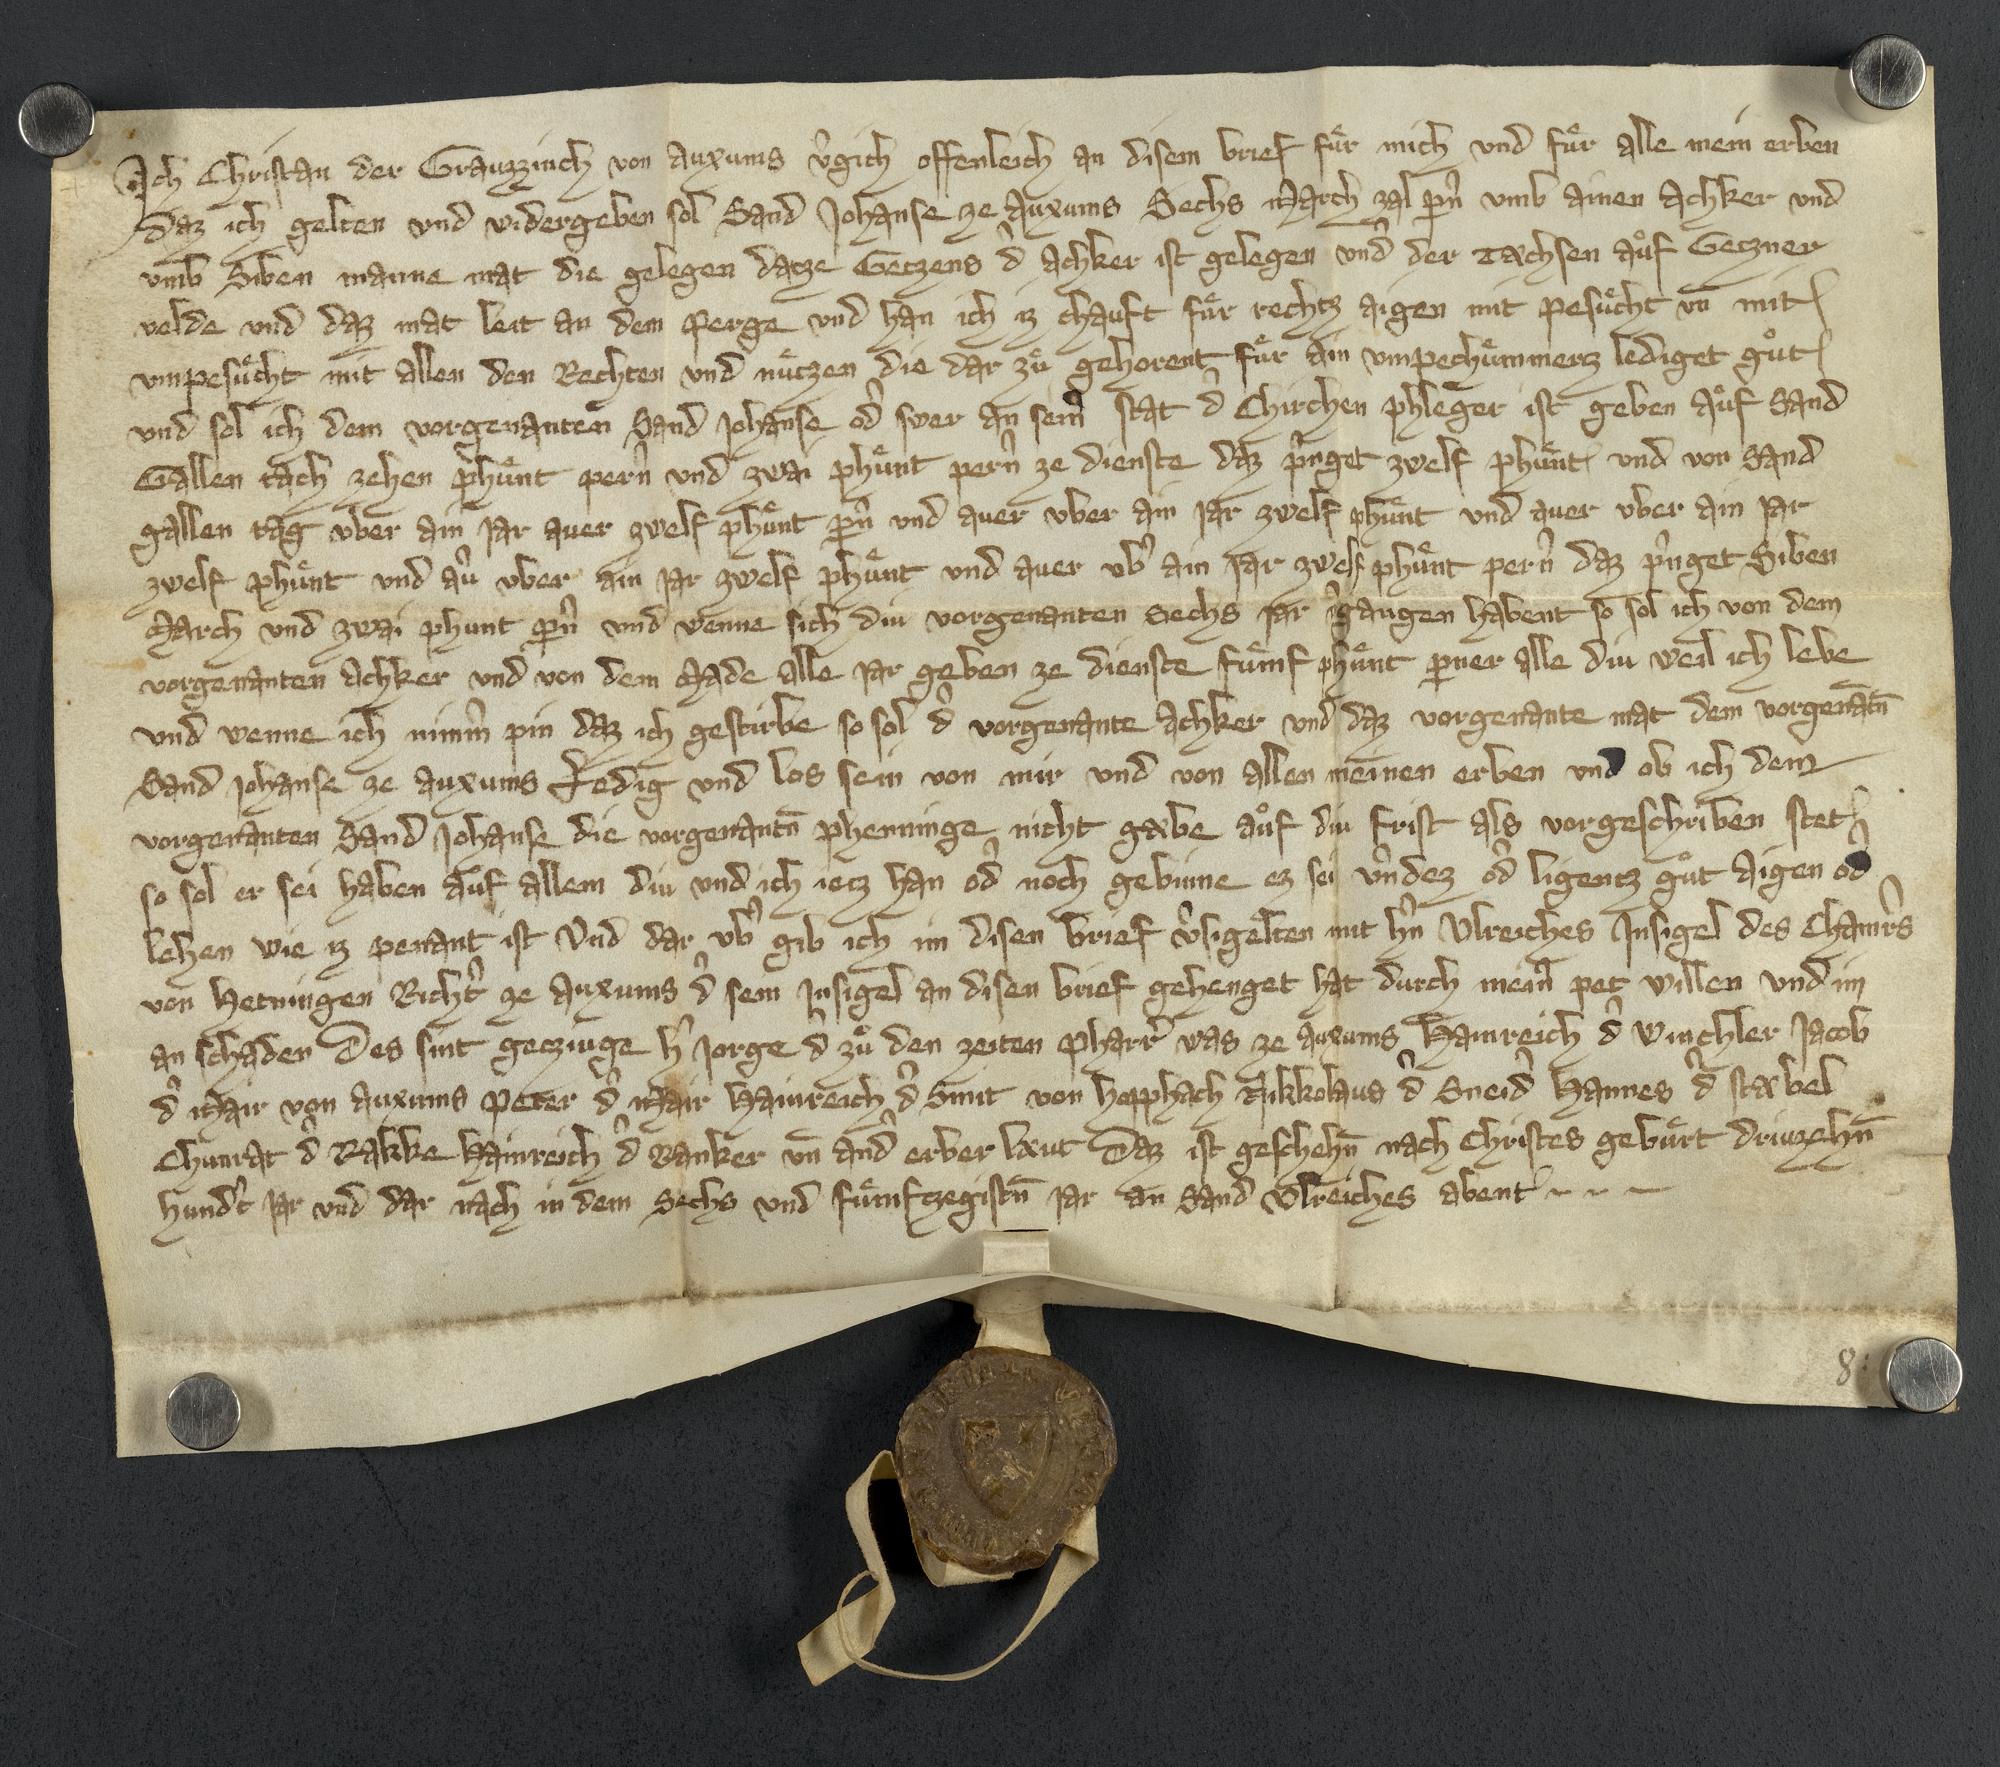 Ich Christan der Grauzzinch von Auxums v̾gich offenleich an disem brief fuͤr mich und fuͤr alle mein erben
Daz ich gelten und widergeben sol Sand Johanse ze Auxums Sechs March zal pn̄ umb ainen Achker und
umb Siben manne mat die gelegen datze Getzens d̾ Achker ist gelegen und̾ der Taͤchsen auͦf Getzner
velde und daz mat leit an dem perge und han ich iz chauft fuͤr rechtz aigen mit pesuͤcht un̄ mit
unpesuͤcht mit allen den Rechten und nuͤtzen die dar zuͤ gehorent fuͤr ain unpechuͤmmerz lediget guͦt
und sol ich dem vorgenanten Sand Johanse od̾ swer an sein̾ stat d̾ Chirchen phleger ist geben auͦf Sand
Gallen tach zehen phuͤnt pern̾ und zwai phuͤnt pern̾ ze dienste daz p̾nget zwelf phuͤnt und von Sand
gallen tag uber ain Jar aver zwelf phuͤnt pn̄ und aver uber ain Jar zwelf phuͤnt und aver uber ain Jar
zwelf phuͤnt und av̾ uber ain Jar zwelf phuͤnt und aver ub̾ ain Jar zwelf phuͤnt pern̾ daz p̾nget Siben
March und zwai phunt pn̄ und wenne sich diu vorgenanten Sechs Jar v̾gangen habent so sol ich von dem
vorgenanten Achker und von dem Made alle Jar geben ze dienste fuͤmf phuͤnt p̄ner alle diu weil ich lebe
und wenne ich nimm̾ pin daz ich gestirbe so sol d̾ vorgenante Achker und daz vorgenante mat dem vorgenātn̄
Sand Johanse ze Auxums Ledig und los sein von mir und von allen meinen erben und ob ich dem
vorgenanten Sand Johanse die vorgenantn̄ phenninge nicht gaͤbe auͦf diu frist als vorgeschriben stet
so sol er sei haben auͦf allem diu und ich ietz han od̾ noch gewinne ez sei v̾ndez od̾ ligentz guͦt Aigen od̾
lehen wie iz penant ist Und dar ub̾ gib ich im disen brief v̾sigelten mit hn̄ Ulreiches Insigel des Cham̾rs
von Hetningen Richt̾ ze Auxums d̾ sein Insigel an disen brief gehenget hat durch mein̾ pet willen und im
an schaden Des sint getziuge h̾ Jorge d̾ zuͦ den zeiten Pharr̾ was ze Auxums Hainreich d̾ Winchler Jacob
d̾ Mair von Auxums Peter d̾ Mair Hainreich d̾ Smit von Hopphach Nikkolaus d̾ Sneid̾ Hannes d̾ Staͤbel
Chunrat d̾ Rakke Hainreich d̾ Ranker un̄ and̾ erber laͤut Daz ist geschehn̄ nach Christes gebuͤrt driuzehn̄
hund̾t Jar und dar nach in dem Sechs und fuͤmftzegistn̄ Jar an Sand Ulreiches abent
8